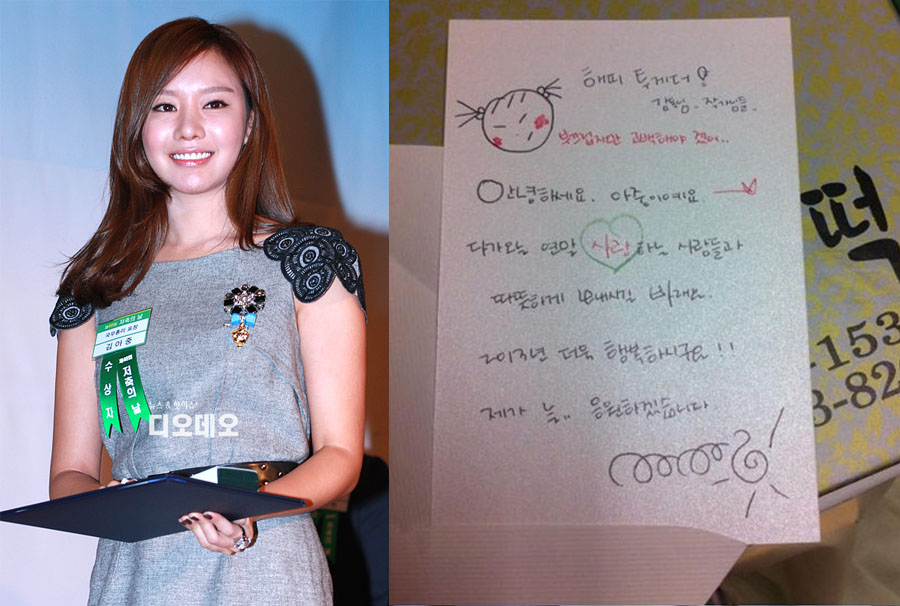 저축의 날
국무총리 표창
김아중
수상자
저축의 날
뉴스 & 핫이슈!
디오데오
해피 투게더!
감독님. 작가님들.
부끄럽지만 고백해야 겠어..
안녕하세요. 아중이예요.
다가오는 연말 사랑하는 사람들과
따뜻하게 보내시길 바래요.
2013년 더욱 행복하시구요!!
제가 늘.. 응원하겠습니다
떡
-153
3-82